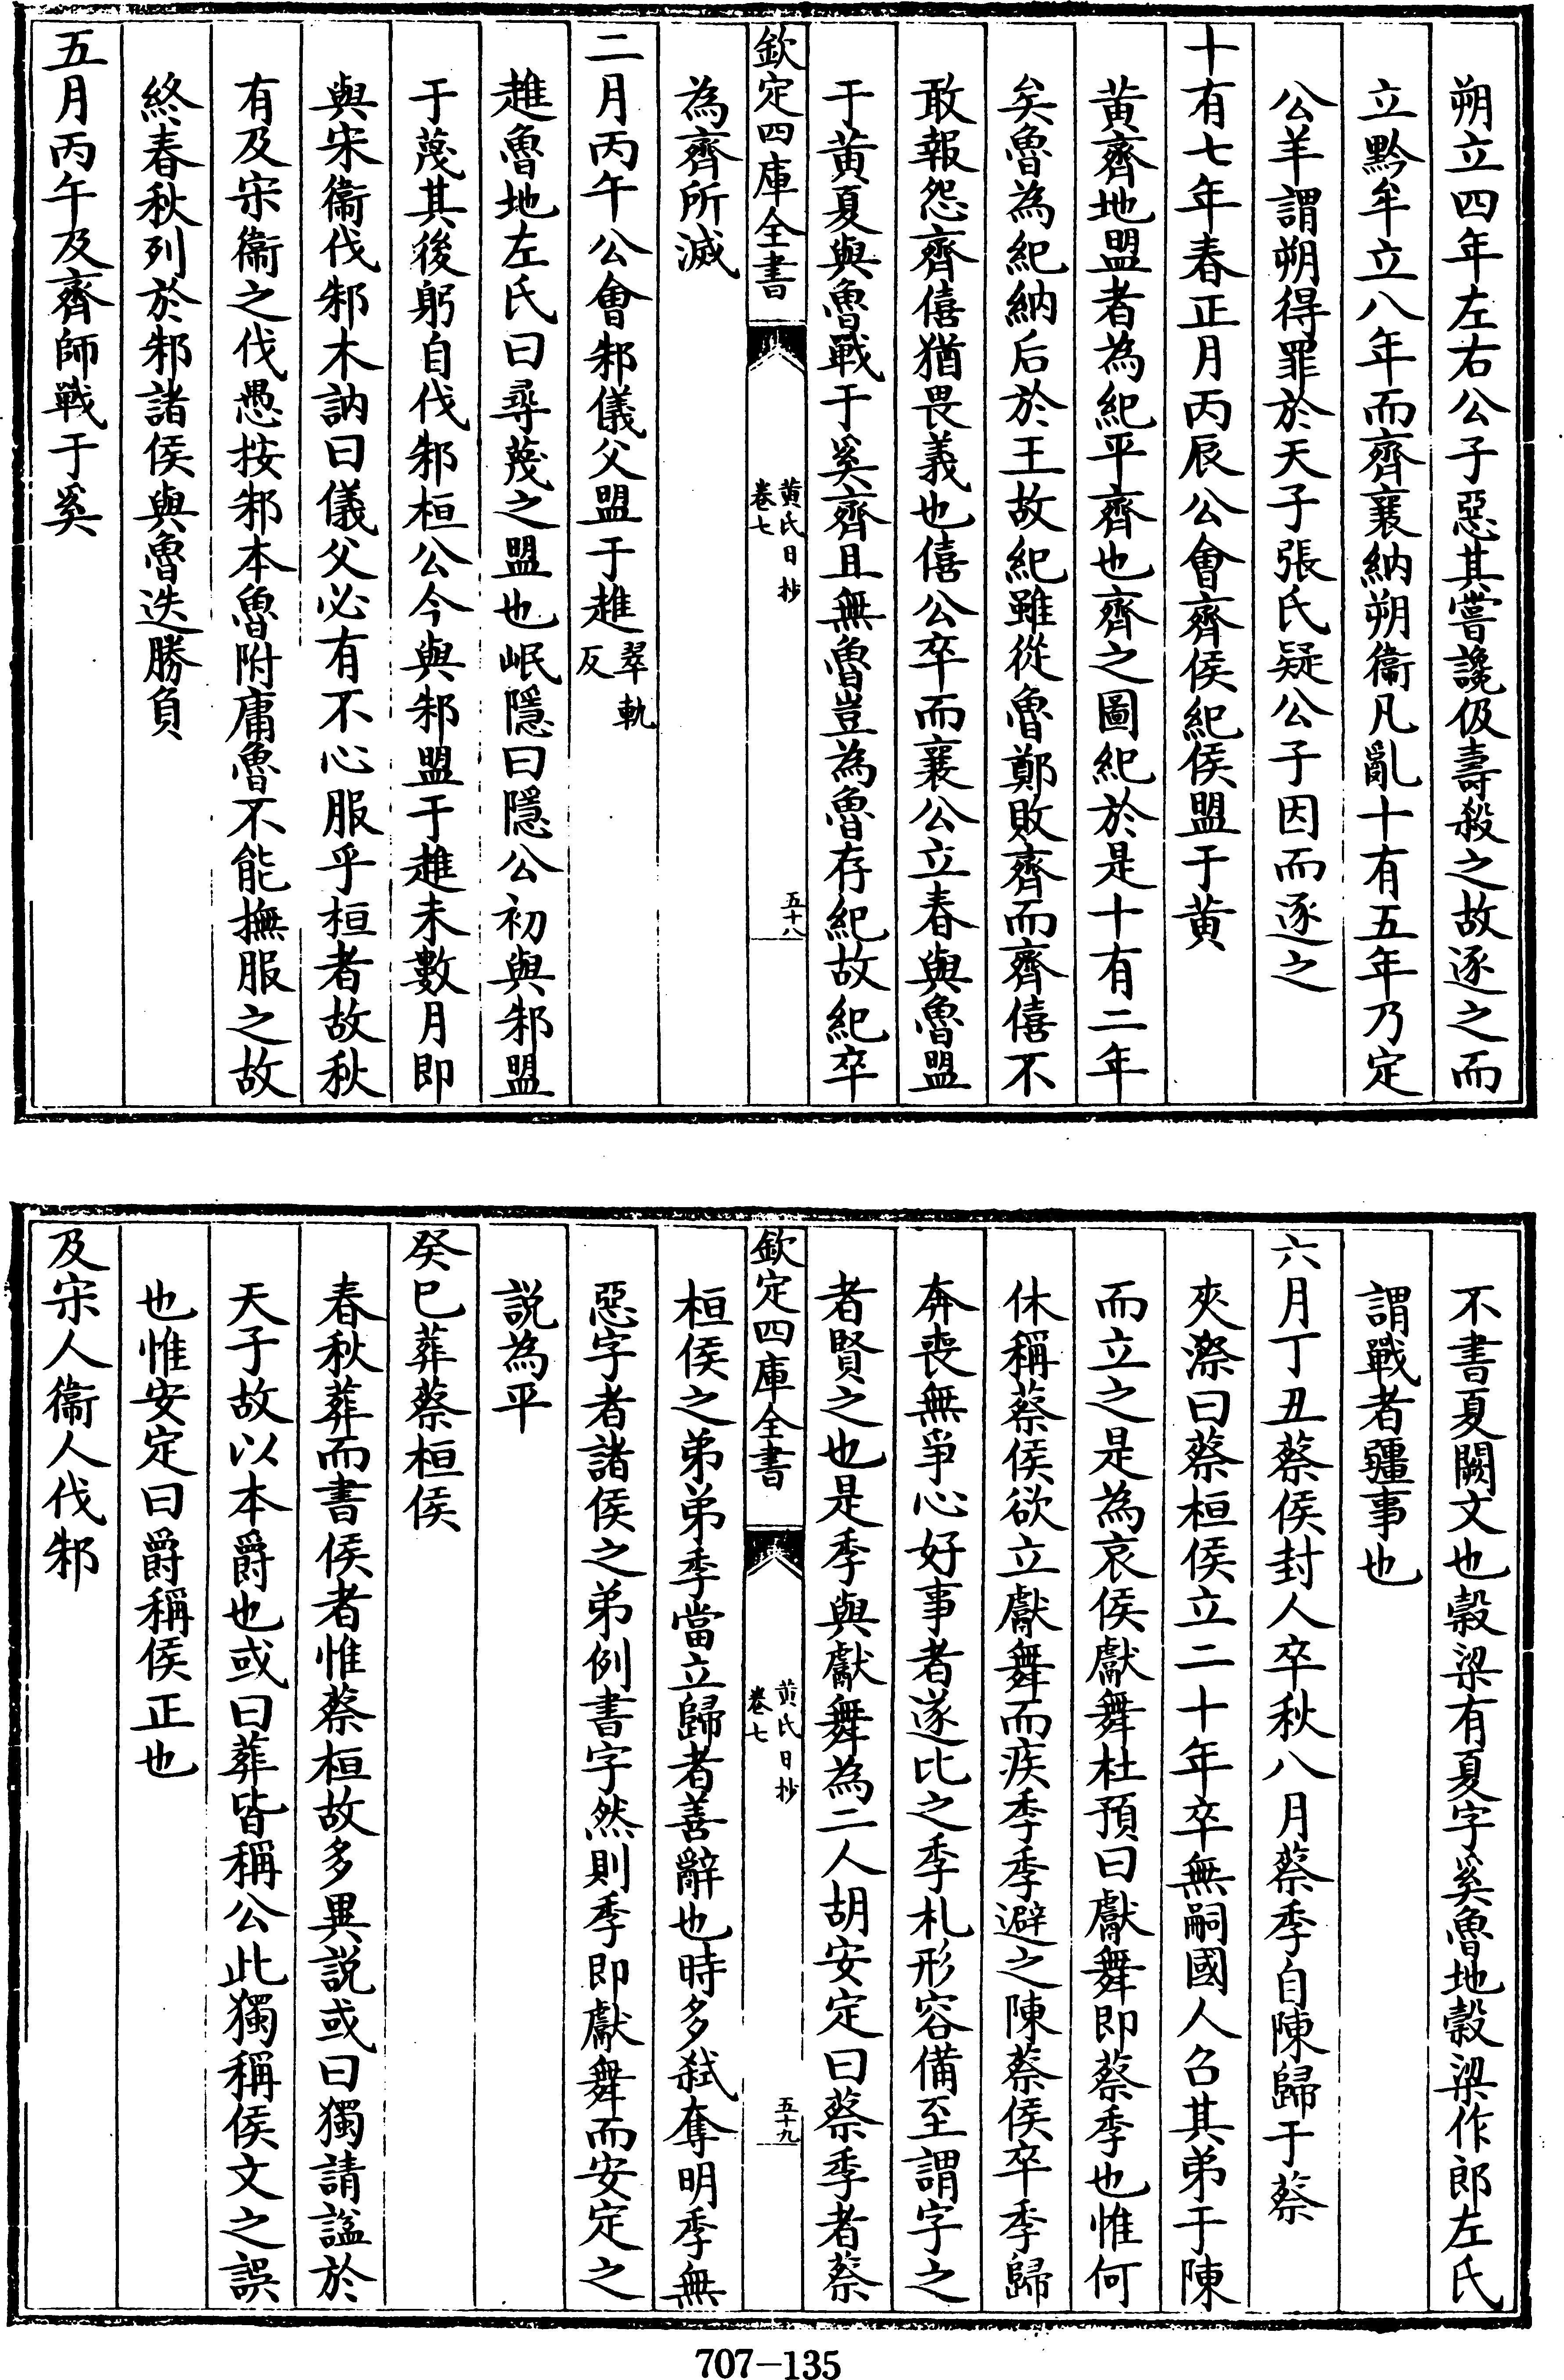 朔立四年左右公子惡其嘗譖伋壽殺之故逐之而
立黔牟立八年而齊襄納朔衞凡亂十有五年乃定
公羊謂朔得罪於天子張氏疑公子因而逐之
十有七年春正月丙辰公會齊侯紀侯盟于黄
黄齊地盟者為紀平齊也齊之圖紀於是十有二年
矣魯為紀納后於王故紀雖從魯鄭敗齊而齊僖不
敢報怨齊僖猶畏義也僖公卒而襄公立春與魯盟
于黄夏與魯戰于奚齊且無魯豈為魯存紀故紀卒
欽定四庫全書
黄氏日抄
卷七
五十八
為齊所滅
二月丙午公會邾儀父盟于趡翠軌反
趡魯地左氏曰尋蔑之盟也岷隱曰隱公初與邾盟
于蔑其後躬自伐邾桓公今與邾盟于趡未數月即
與宋衞伐邾木訥曰儀父必有不心服乎桓者故秋
有及宋衞之伐愚按邾本魯附庸魯不能撫服之故
終春秋列於邾諸侯與魯迭勝負
五月丙午及齊師戰于奚
不書夏闕文也穀梁有夏字奚魯地穀梁作郎左氏
謂戰者疆事也
六月丁丑蔡侯封人卒秋八月蔡季自陳歸于蔡
夾漈曰蔡桓侯立二十年卒無嗣國人召其弟于陳
而立之是為哀侯獻舞杜預曰獻舞即蔡季也惟何
休稱蔡侯欲立獻舞而疾季季避之陳蔡侯卒季歸
奔喪無爭心好事者遂比之季札形容備至謂字之
者賢之也是季與獻舞為二人胡安定曰蔡季者蔡
欽定四庫全書
黄氏日抄
卷七
五十九
桓侯之弟弟季當立歸者善辭也時多弑奪明季無
惡字者諸侯之弟例書字然則季即獻舞而安定之
説為平
癸巳葬蔡桓侯
春秋葬而書侯者惟蔡桓故多異説或曰獨請諡於
天子故以本爵也或曰葬皆稱公此獨稱侯文之誤
也惟安定曰爵稱侯正也
及宋人衞人伐邾
707-135